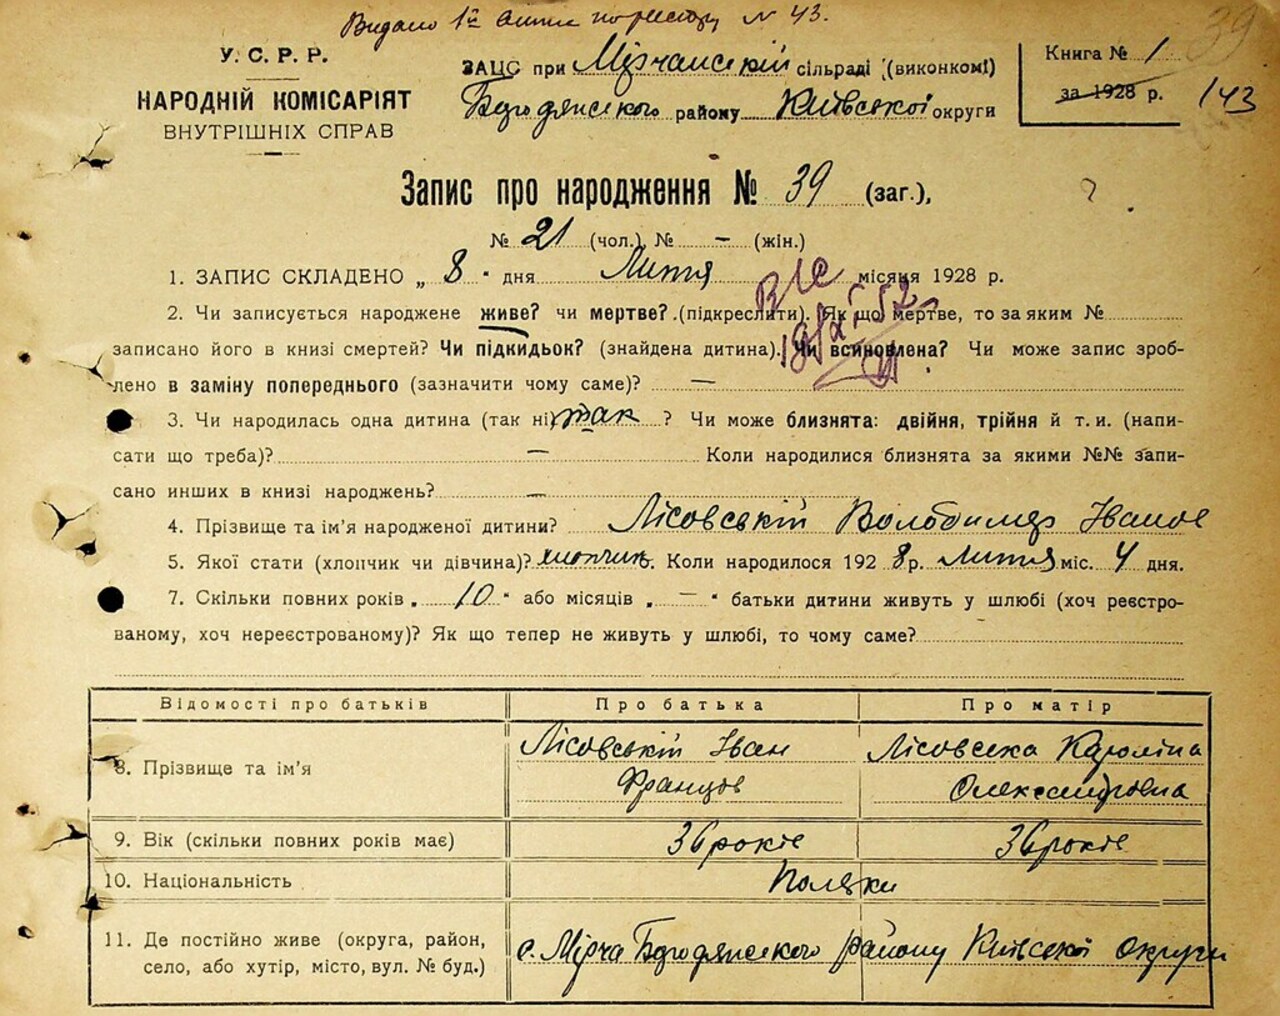 Видано 1й витяг по реєстру N 43.
39
У. С. Р. Р.
НАРОДНІЙ КОМІСАРІЯТ
ВНУТРІШНІХ СПРАВ
ЗАЦС при Мірчанській сільраді (виконкомі)
Бородянського району Київської округи
Книга № 1
за 1928 р. 143
Запис про народження № 39 (заг.),
№ 21 (чол.), № – (жін.)
1. ЗАПИС СКЛАДЕНО „ 8 “ дня Лютя місяця 1928 р.
2. Чи записується народжене живе? чи мертве? (підкреслити). Як що мертве, то за яким №
записано його в книзі смертей? Чи підкидьок? (знайдена дитина). Чи всиновлена? Чи може запис зроб-
лено в заміну попереднього (зазначити чому саме)? —
3. Чи народилась одна дитина (так ні) так ? Чи може близнята: двійня, трійня й т. и. (напи-
сати що треба)? — Коли народилися близнята за якими №№ запи-
сано инших в книзі народжень? —
4. Прізвище та ім’я народженої дитини? Лісовській Володимер Іванов
5. Якої стати (хлопчик чи дівчина)? хлопчик. Коли народилося 192 8 р. Лютя міс. 4 дня.
7. Скільки повних років „ 10 “ або місяців „ — “ батьки дитини живуть у шлюбі (хоч реєстро-
ваному, хоч нереєстрованому)? Як що тепер не живуть у шлюбі, то чому саме?
Відомості про батьків Про батька Про матір
8. Прізвище та ім’я Лісовській Іван Францов Лісовська Кароліна Олександровна
9. Вік (скільки повних років має) 36 років 36 років
10. Національність Поляки
11. Де постійно живе (округа, район,
село, або хутір, місто, вул. № буд.) с. Мірча Бородянського району Київської округи